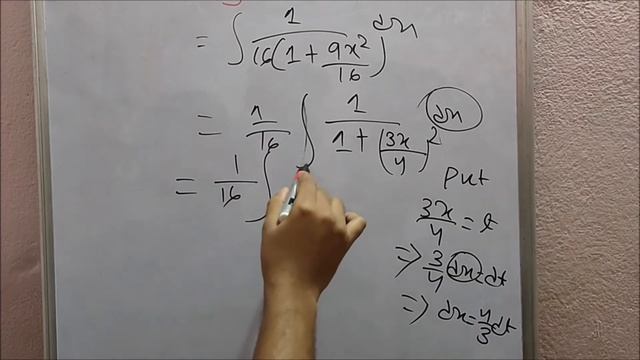 = ∫ 1/16(1 + 9x²/16) dx
= 1/16 ∫ 1/1 + (3x/4)² dx
= 1/16 ∫
put
3x/4 = t
⇒ 3/4 dx = dt
⇒ dx = 4/3 dt